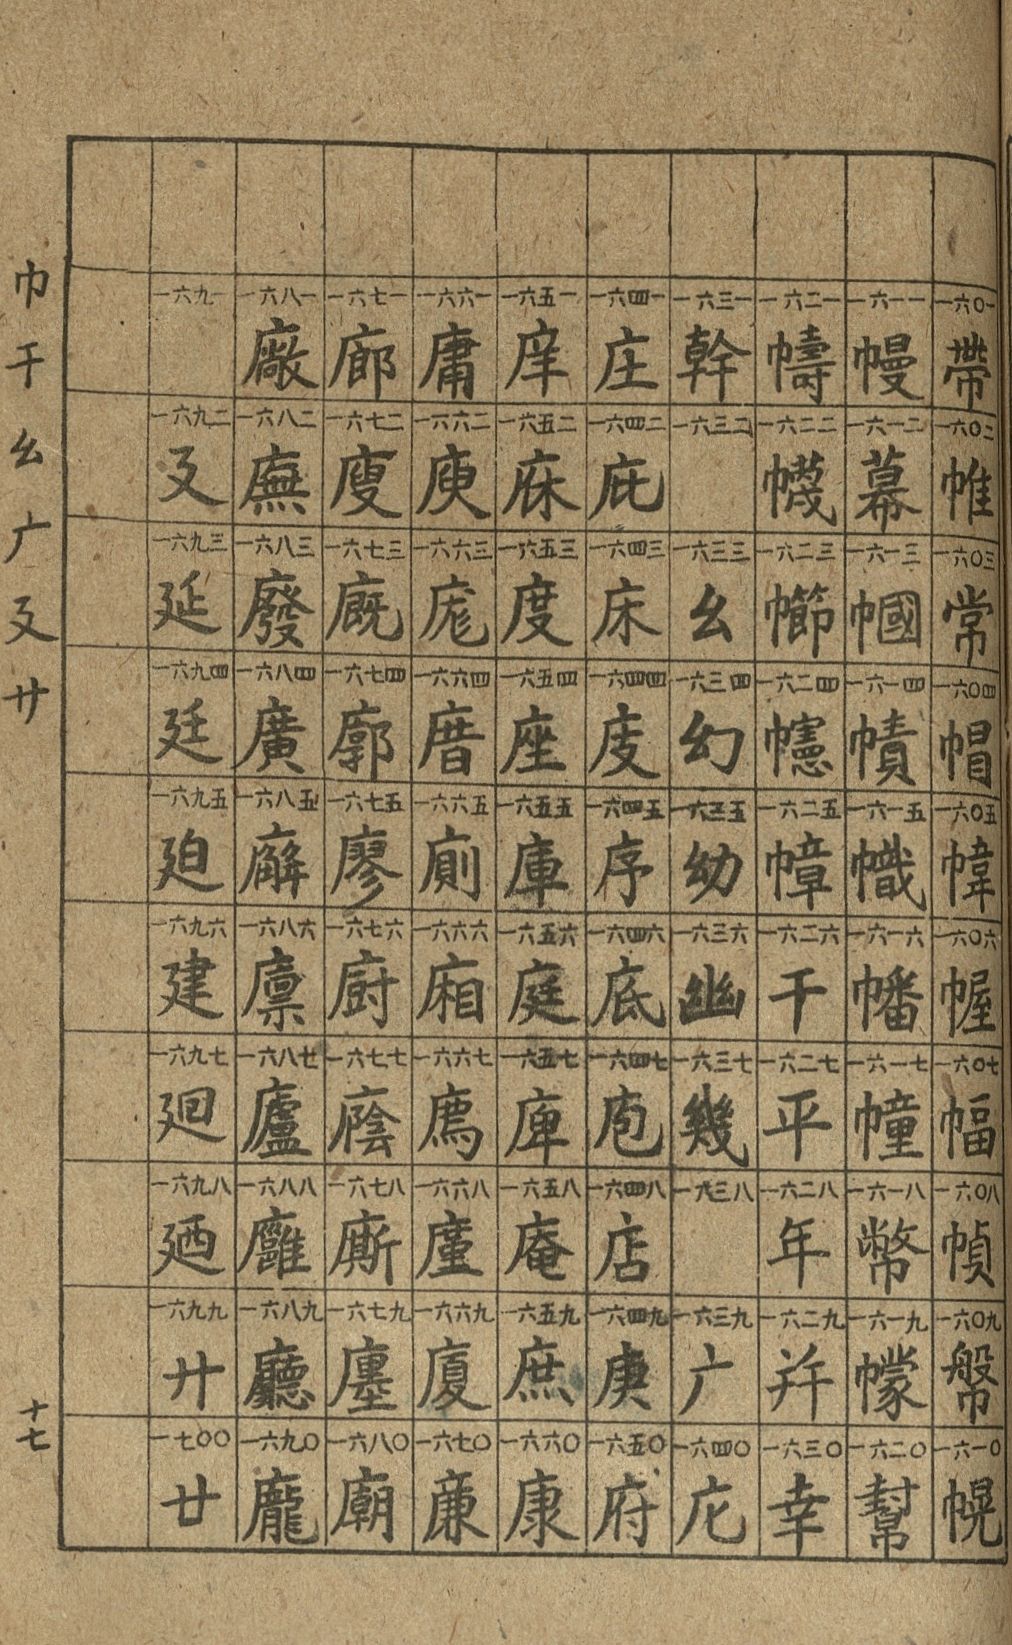 一六〇一 帶 一六〇二 帷 一六〇三 常 一六〇四 帽 一六〇五 幃 一六〇六 幄 一六〇七 幅 一六〇八 幀 一六〇九 幋 一六一〇 幌
一六一一 幔 一六一二 幕 一六一三 幗 一六一四 幘 一六一五 幟 一六一六 幡 一六一七 幢 一六一八 幣 一六一九 幪 一六二〇 幫
一六二一 幬 一六二二 幭 一六二三 幯 一六二四 幰 一六二五 幛 一六二六 干 一六二七 平 一六二八 年 一六二九 幷 一六三〇 幸
一六三一 幹 一六三二 一六三三 幺 一六三四 幻 一六三五 幼 一六三六 幽 一六三七 幾 一六三八 一六三九 广 一六四〇 庀
一六四一 庄 一六四二 庇 一六四三 床 一六四四 庋 一六四五 序 一六四六 底 一六四七 庖 一六四八 店 一六四九 庚 一六五〇 府
一六五一 庠 一六五二 庥 一六五三 度 一六五四 座 一六五五 庫 一六五六 庭 一六五七 庳 一六五八 庵 一六五九 庶 一六六〇 康
一六六一 庸 一六六二 庾 一六六三 庬 一六六四 厝 一六六五 廁 一六六六 廂 一六六七 廌 一六六八 廑 一六六九 廈 一六七〇 廉
一六七一 廊 一六七二 廋 一六七三 廐 一六七四 廓 一六七五 廖 一六七六 廚 一六七七 廕 一六七八 廝 一六七九 廛 一六八〇 廟
一六八一 廠 一六八二 廡 一六八三 廢 一六八四 廣 一六八五 廨 一六八六 廩 一六八七 廬 一六八八 廱 一六八九 廳 一六九〇 龐
一六九一 一六九二 廴 一六九三 延 一六九四 廷 一六九五 廹 一六九六 建 一六九七 廻 一六九八 廼 一六九九 廾 一七〇〇 廿
巾干幺广廴廾
十七